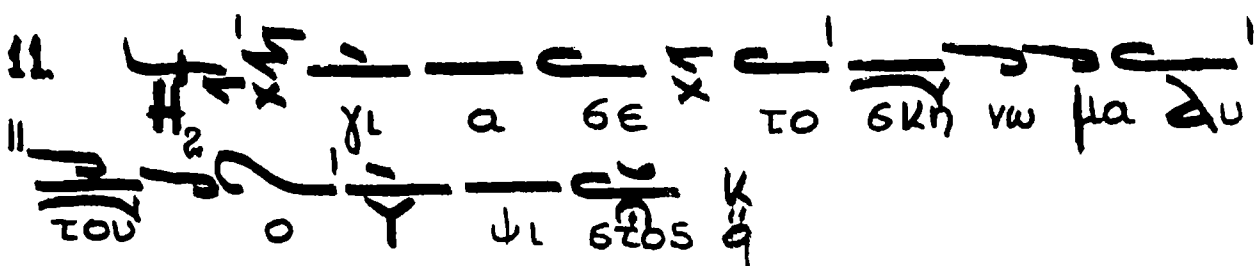 11. Η₂ γι α σε το σκη νω μα αυ
του ο Υ ψι στος